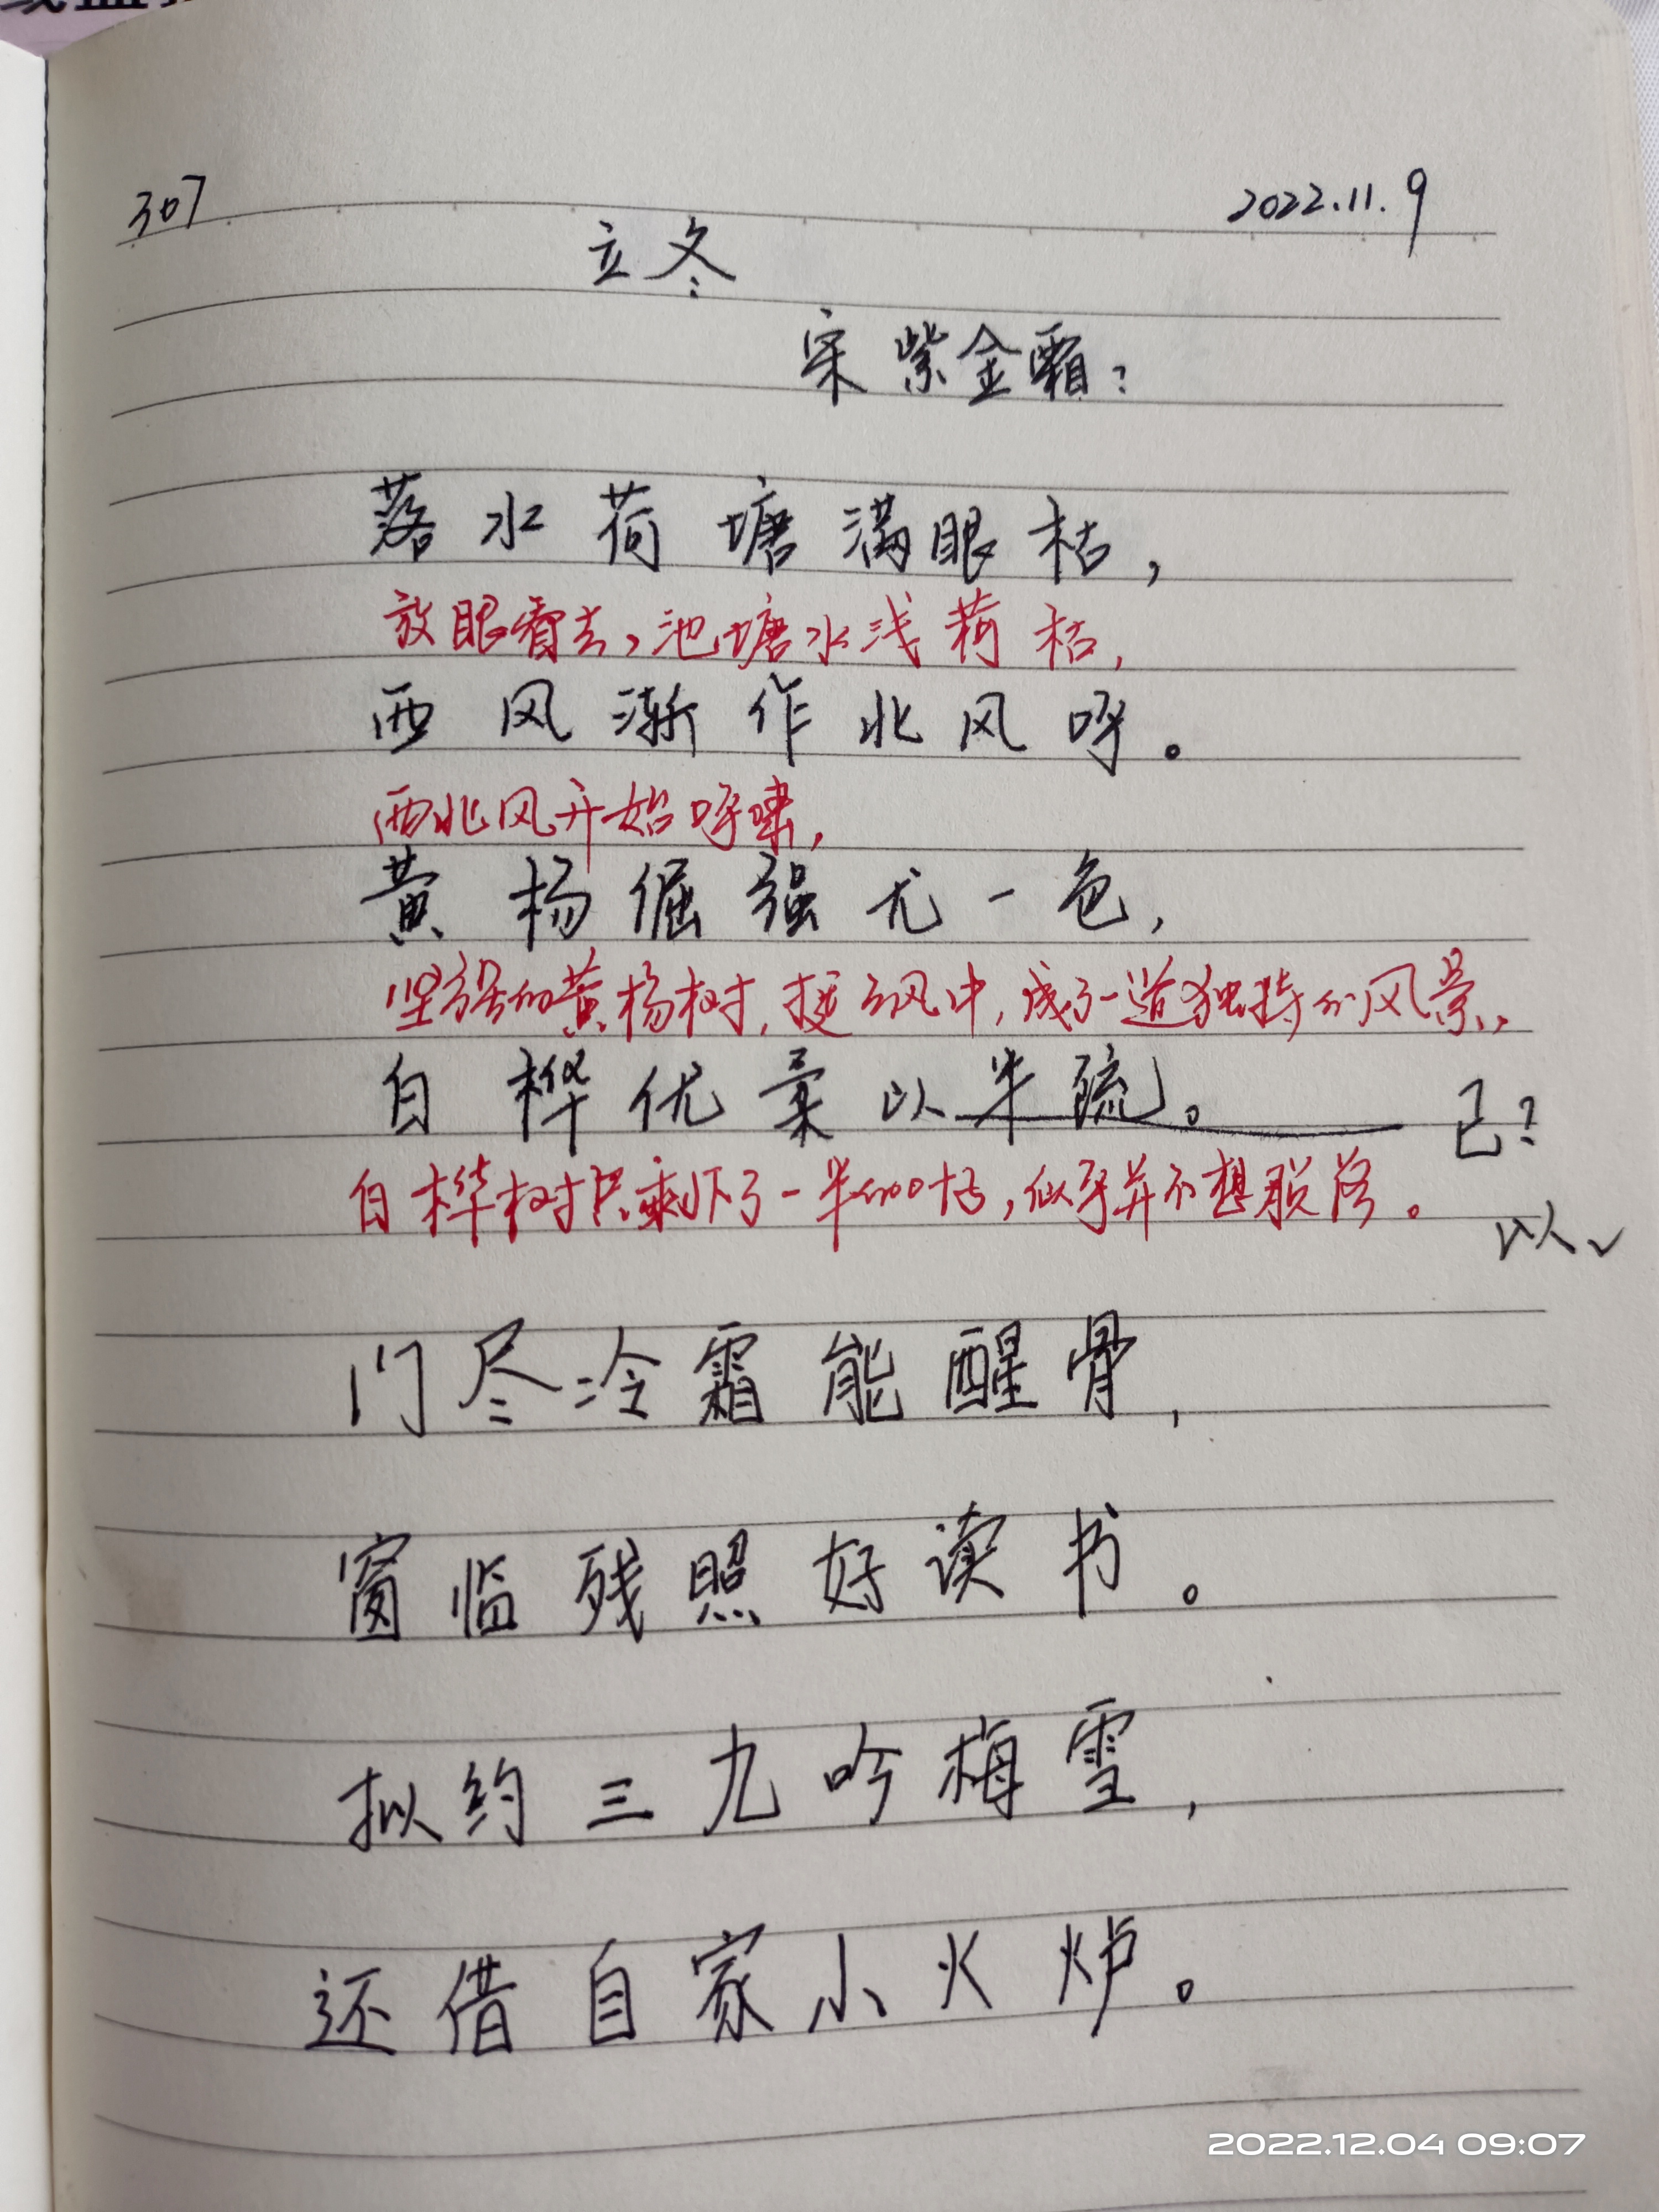 307 2022.11.9
立冬
宋 紫金霜:
落水荷塘满眼枯,
放眼看去,池塘水浅荷枯,
西风渐作北风呼。
西北风开始呼啸,
黄杨倔强尤一色,
坚强的黄杨树,挺立风中,成了一道独特的风景,
白桦优柔以半疏。 已?
白桦树只剩下了一半的叶子,似乎并不想脱落。
以✓
门尽冷霜能醒骨,
窗临残照好读书。
拟约三九吟梅雪,
还借自家小火炉。
2022.12.04 09:07